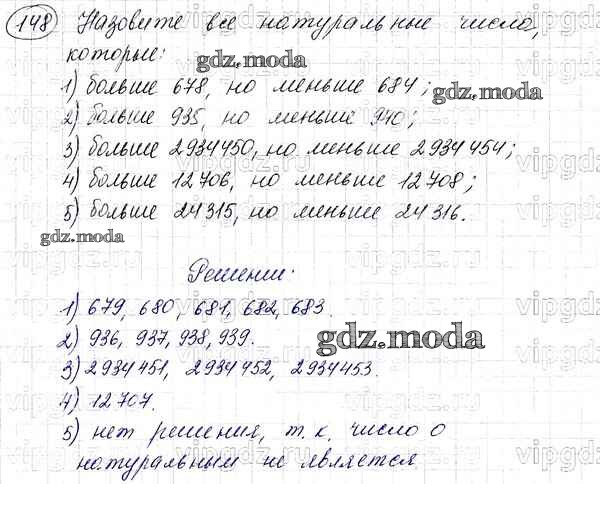 148 Назовите все натуральные числа,
которые:
gdz.moda
1) больше 678, но меньше 684;
gdz.moda
2) больше 935, но меньше 940;
3) больше 2934450, но меньше 2934454;
4) больше 12706, но меньше 12708;
5) больше 24315, но меньше 24316.
gdz.moda
Решении:
1) 679, 680, 681, 682, 683.
2) 936, 937, 938, 939.
gdz.moda
3) 2934451, 2934452, 2934453.
4) 12707.
5) нет решения, т.к. число 0
натуральным не является